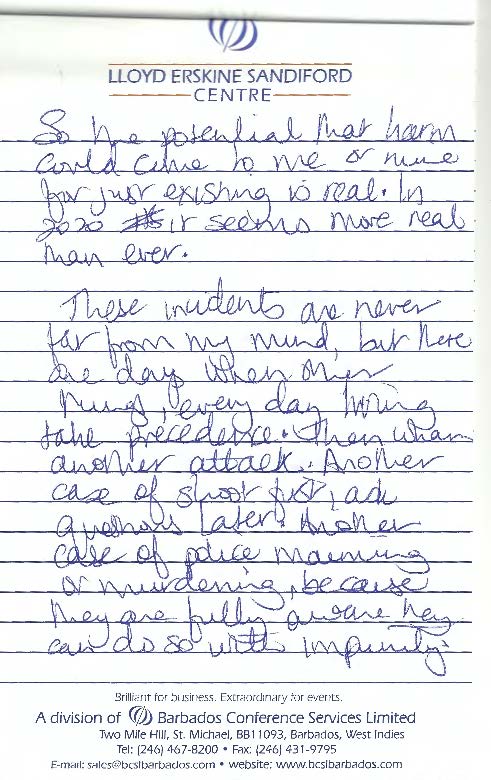 LLOYD ERSKINE SANDIFORD
CENTRE
So the potential that harm
could come to me or mine
for just existing is real. In
2020 it seems more real
than ever.
These incidents are never
far from my mind, but there
are days when other
things, every day living
take precedence. Then wham
another attack. Another
case of shoot first, ask
questions later. Another
case of police maiming
or murdering, because
they are fully aware they
can do so with impunity.
Brilliant for business. Extraordinary for events.
A division of Barbados Conference Services Limited
Two Mile Hill, St. Michael, BB11093, Barbados, West Indies
Tel: (246) 467-8200 • Fax: (246) 431-9795
E-mail: sales@bcslbarbados.com • website: www.bcslbarbados.com